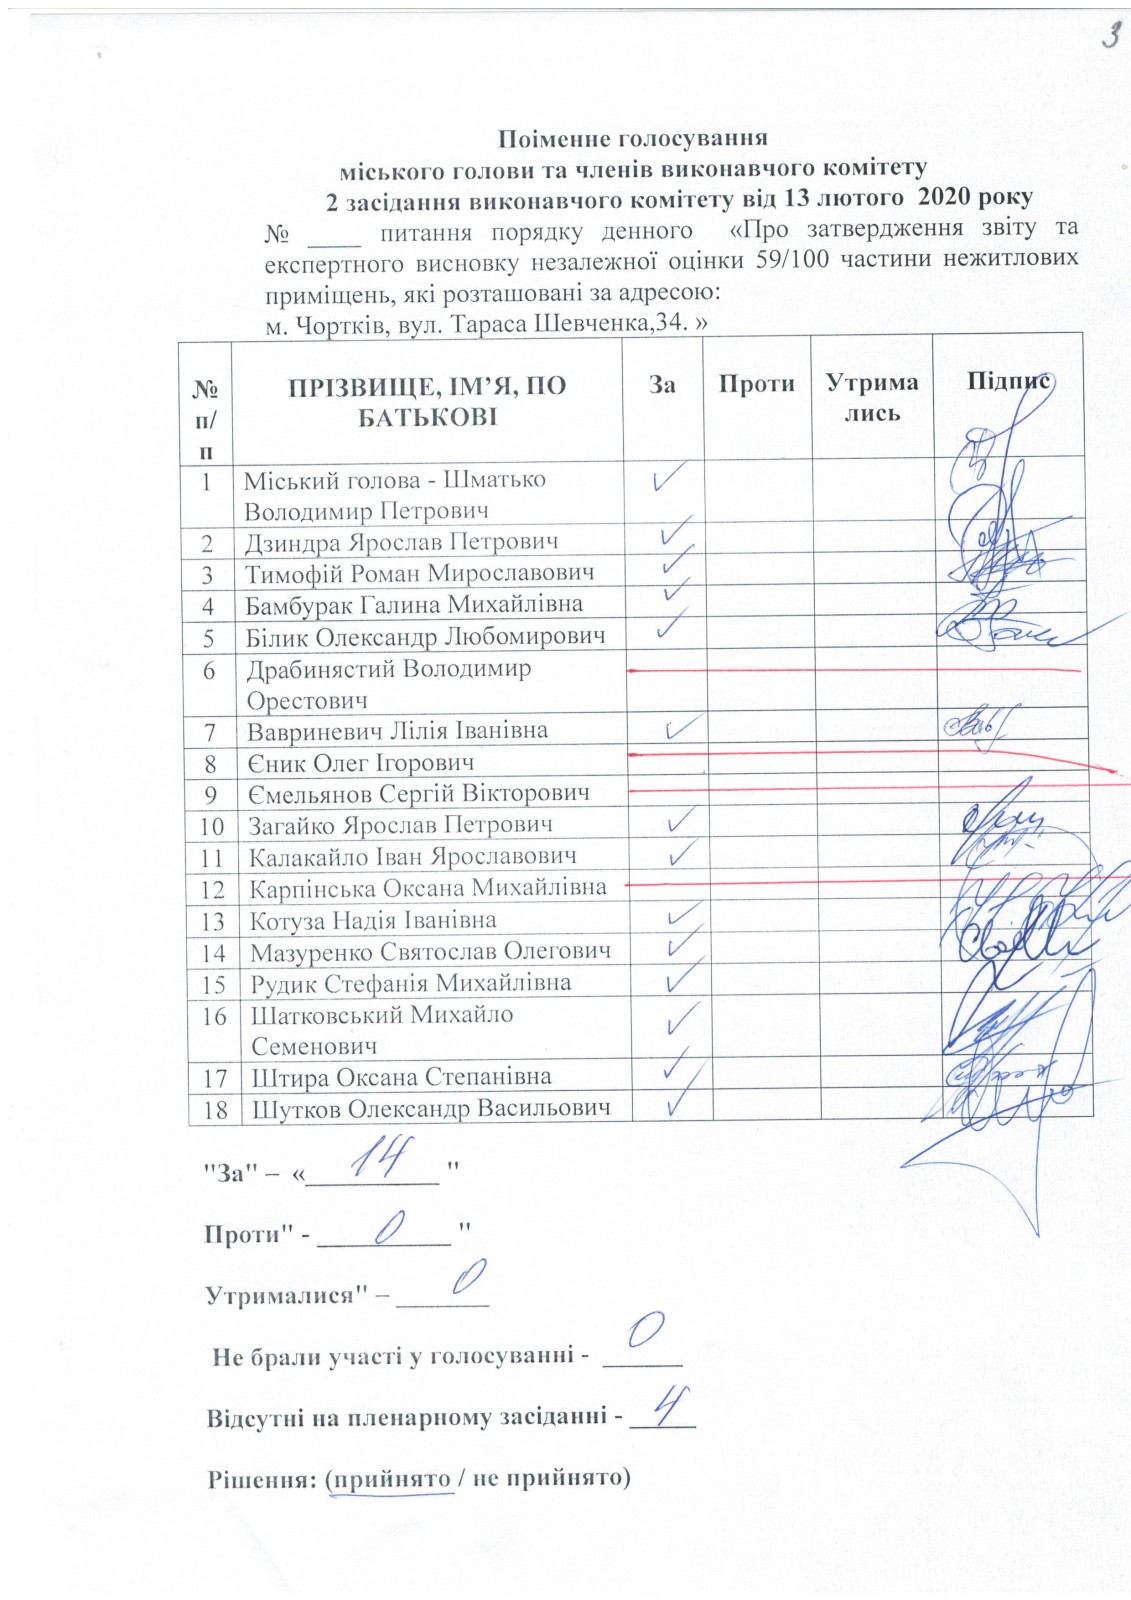 3
Поіменне голосування
міського голови та членів виконавчого комітету
2 засідання виконавчого комітету від 13 лютого 2020 року
№ ____ питання порядку денного «Про затвердження звіту та
експертного висновку незалежної оцінки 59/100 частини нежитлових
приміщень, які розташовані за адресою:
м. Чортків, вул. Тараса Шевченка,34. »
№ п/п ПРІЗВИЩЕ, ІМ’Я, ПО БАТЬКОВІ За Проти Утрима лись Підпис
1 Міський голова - Шматько
Володимир Петрович ✓
2 Дзиндра Ярослав Петрович ✓
3 Тимофій Роман Мирославович ✓
4 Бамбурак Галина Михайлівна ✓
5 Білик Олександр Любомирович ✓
6 Драбинястий Володимир
Орестович
7 Вавриневич Лілія Іванівна ✓
8 Єник Олег Ігорович
9 Ємельянов Сергій Вікторович
10 Загайко Ярослав Петрович ✓
11 Калакайло Іван Ярославович ✓
12 Карпінська Оксана Михайлівна
13 Котуза Надія Іванівна ✓
14 Мазуренко Святослав Олегович ✓
15 Рудик Стефанія Михайлівна ✓
16 Шатковський Михайло
Семенович ✓
17 Штира Оксана Степанівна ✓
18 Шутков Олександр Васильович ✓
"За" – «14 "
Проти" - 0 "
Утрималися" – 0
Не брали участі у голосуванні - 0
Відсутні на пленарному засіданні - 4
Рішення: (прийнято / не прийнято)